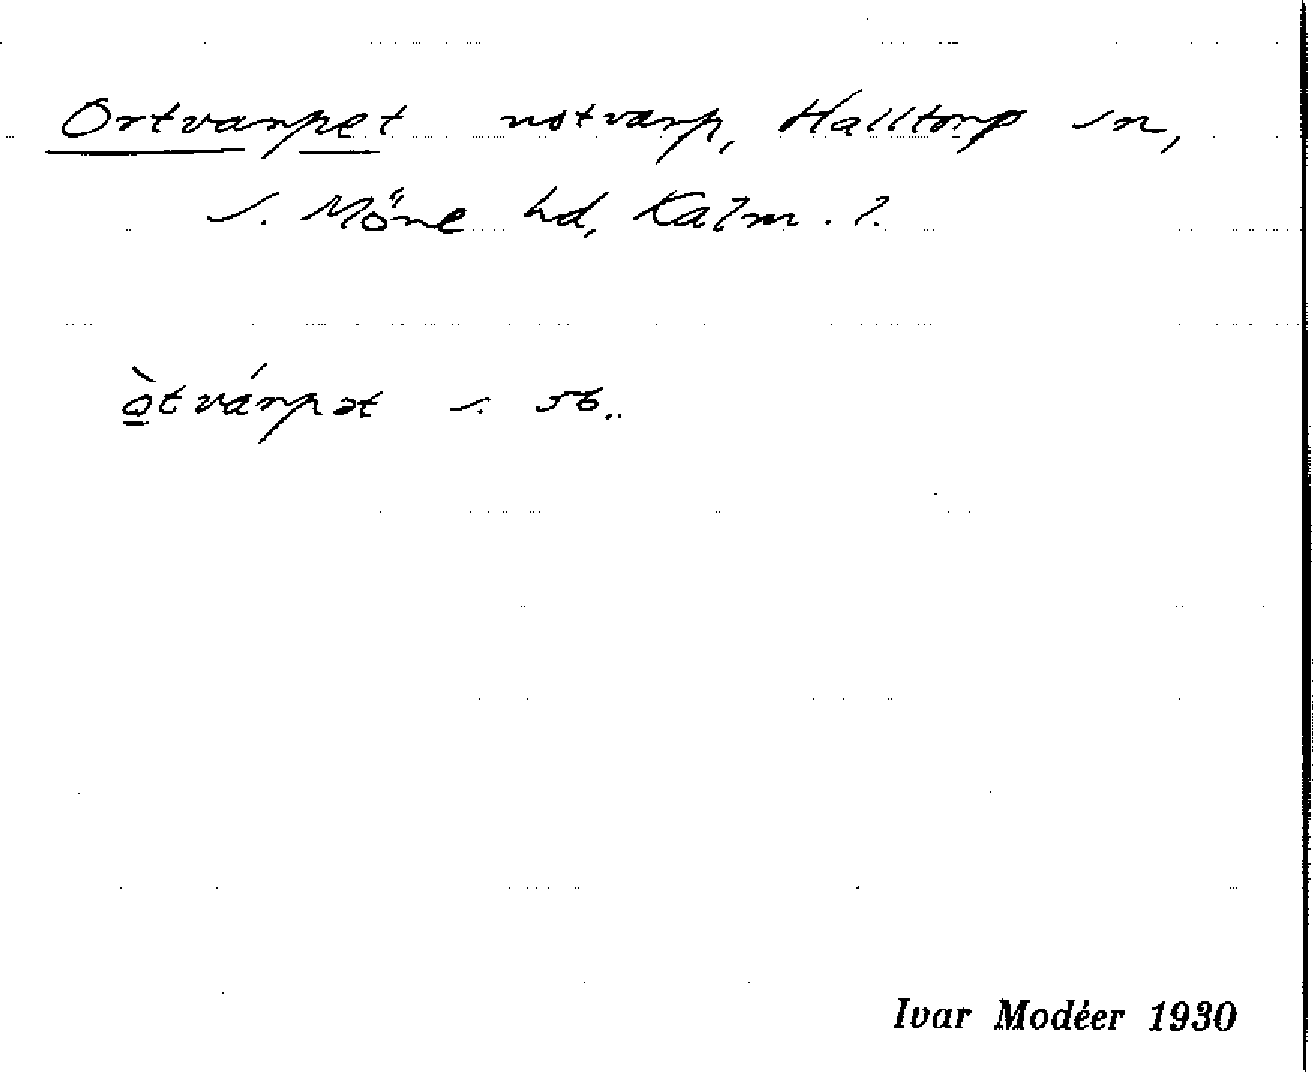 Ortvarpet notvarp, Halltorp sn,
S. Möre hd, Kalm. l.
ò̲tvárpət s. 56..
Ivar Modéer 1930